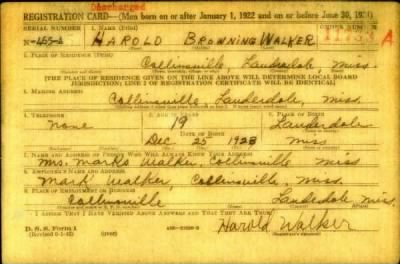 Discharged
REGISTRATION CARD—(Men born on or after January 1, 1922 and on or before June 30, 1924)
SERIAL NUMBER 1. NAME (Print)
HAROLD BROWNING WALKER
2. PLACE OF RESIDENCE (Print)
Collinsville, Lauderdale, Miss.
[THE PLACE OF RESIDENCE GIVEN ON THE LINE ABOVE WILL DETERMINE LOCAL BOARD
JURISDICTION; LINE 2 OF REGISTRATION CERTIFICATE WILL BE IDENTICAL]
3. MAILING ADDRESS
Collinsville Lauderdale, Miss.
4. TELEPHONE 5. AGE IN YEARS 6. PLACE OF BIRTH
None 19 Lauderdale
DATE OF BIRTH
Dec 25 1923 Miss
7. NAME AND ADDRESS OF PERSON WHO WILL ALWAYS KNOW YOUR ADDRESS
Mrs. Mark Walker, Collinsville Miss
8. EMPLOYER'S NAME AND ADDRESS
Mark Walker, Collinsville, Miss.
9. PLACE OF EMPLOYMENT OR BUSINESS
Collinsville Lauderdale Miss.
I AFFIRM THAT I HAVE VERIFIED ABOVE ANSWERS AND THAT THEY ARE TRUE.
D. S. S. Form 1
(over)
Harold Walker